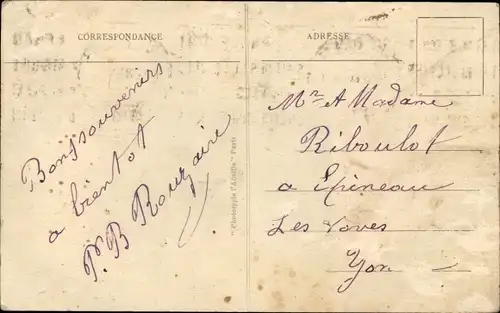 CORRESPONDANCE
Bons souvenirs
a bientot
P. B Rougaire
"Phototypie l'Abeille" Paris
ADRESSE
Mr et Madame
Riboulot
a Epineau
Les Voves
Yon